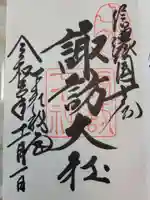 信濃國一之宮
諏訪大社
下社秋宮
令和三年十一月一日